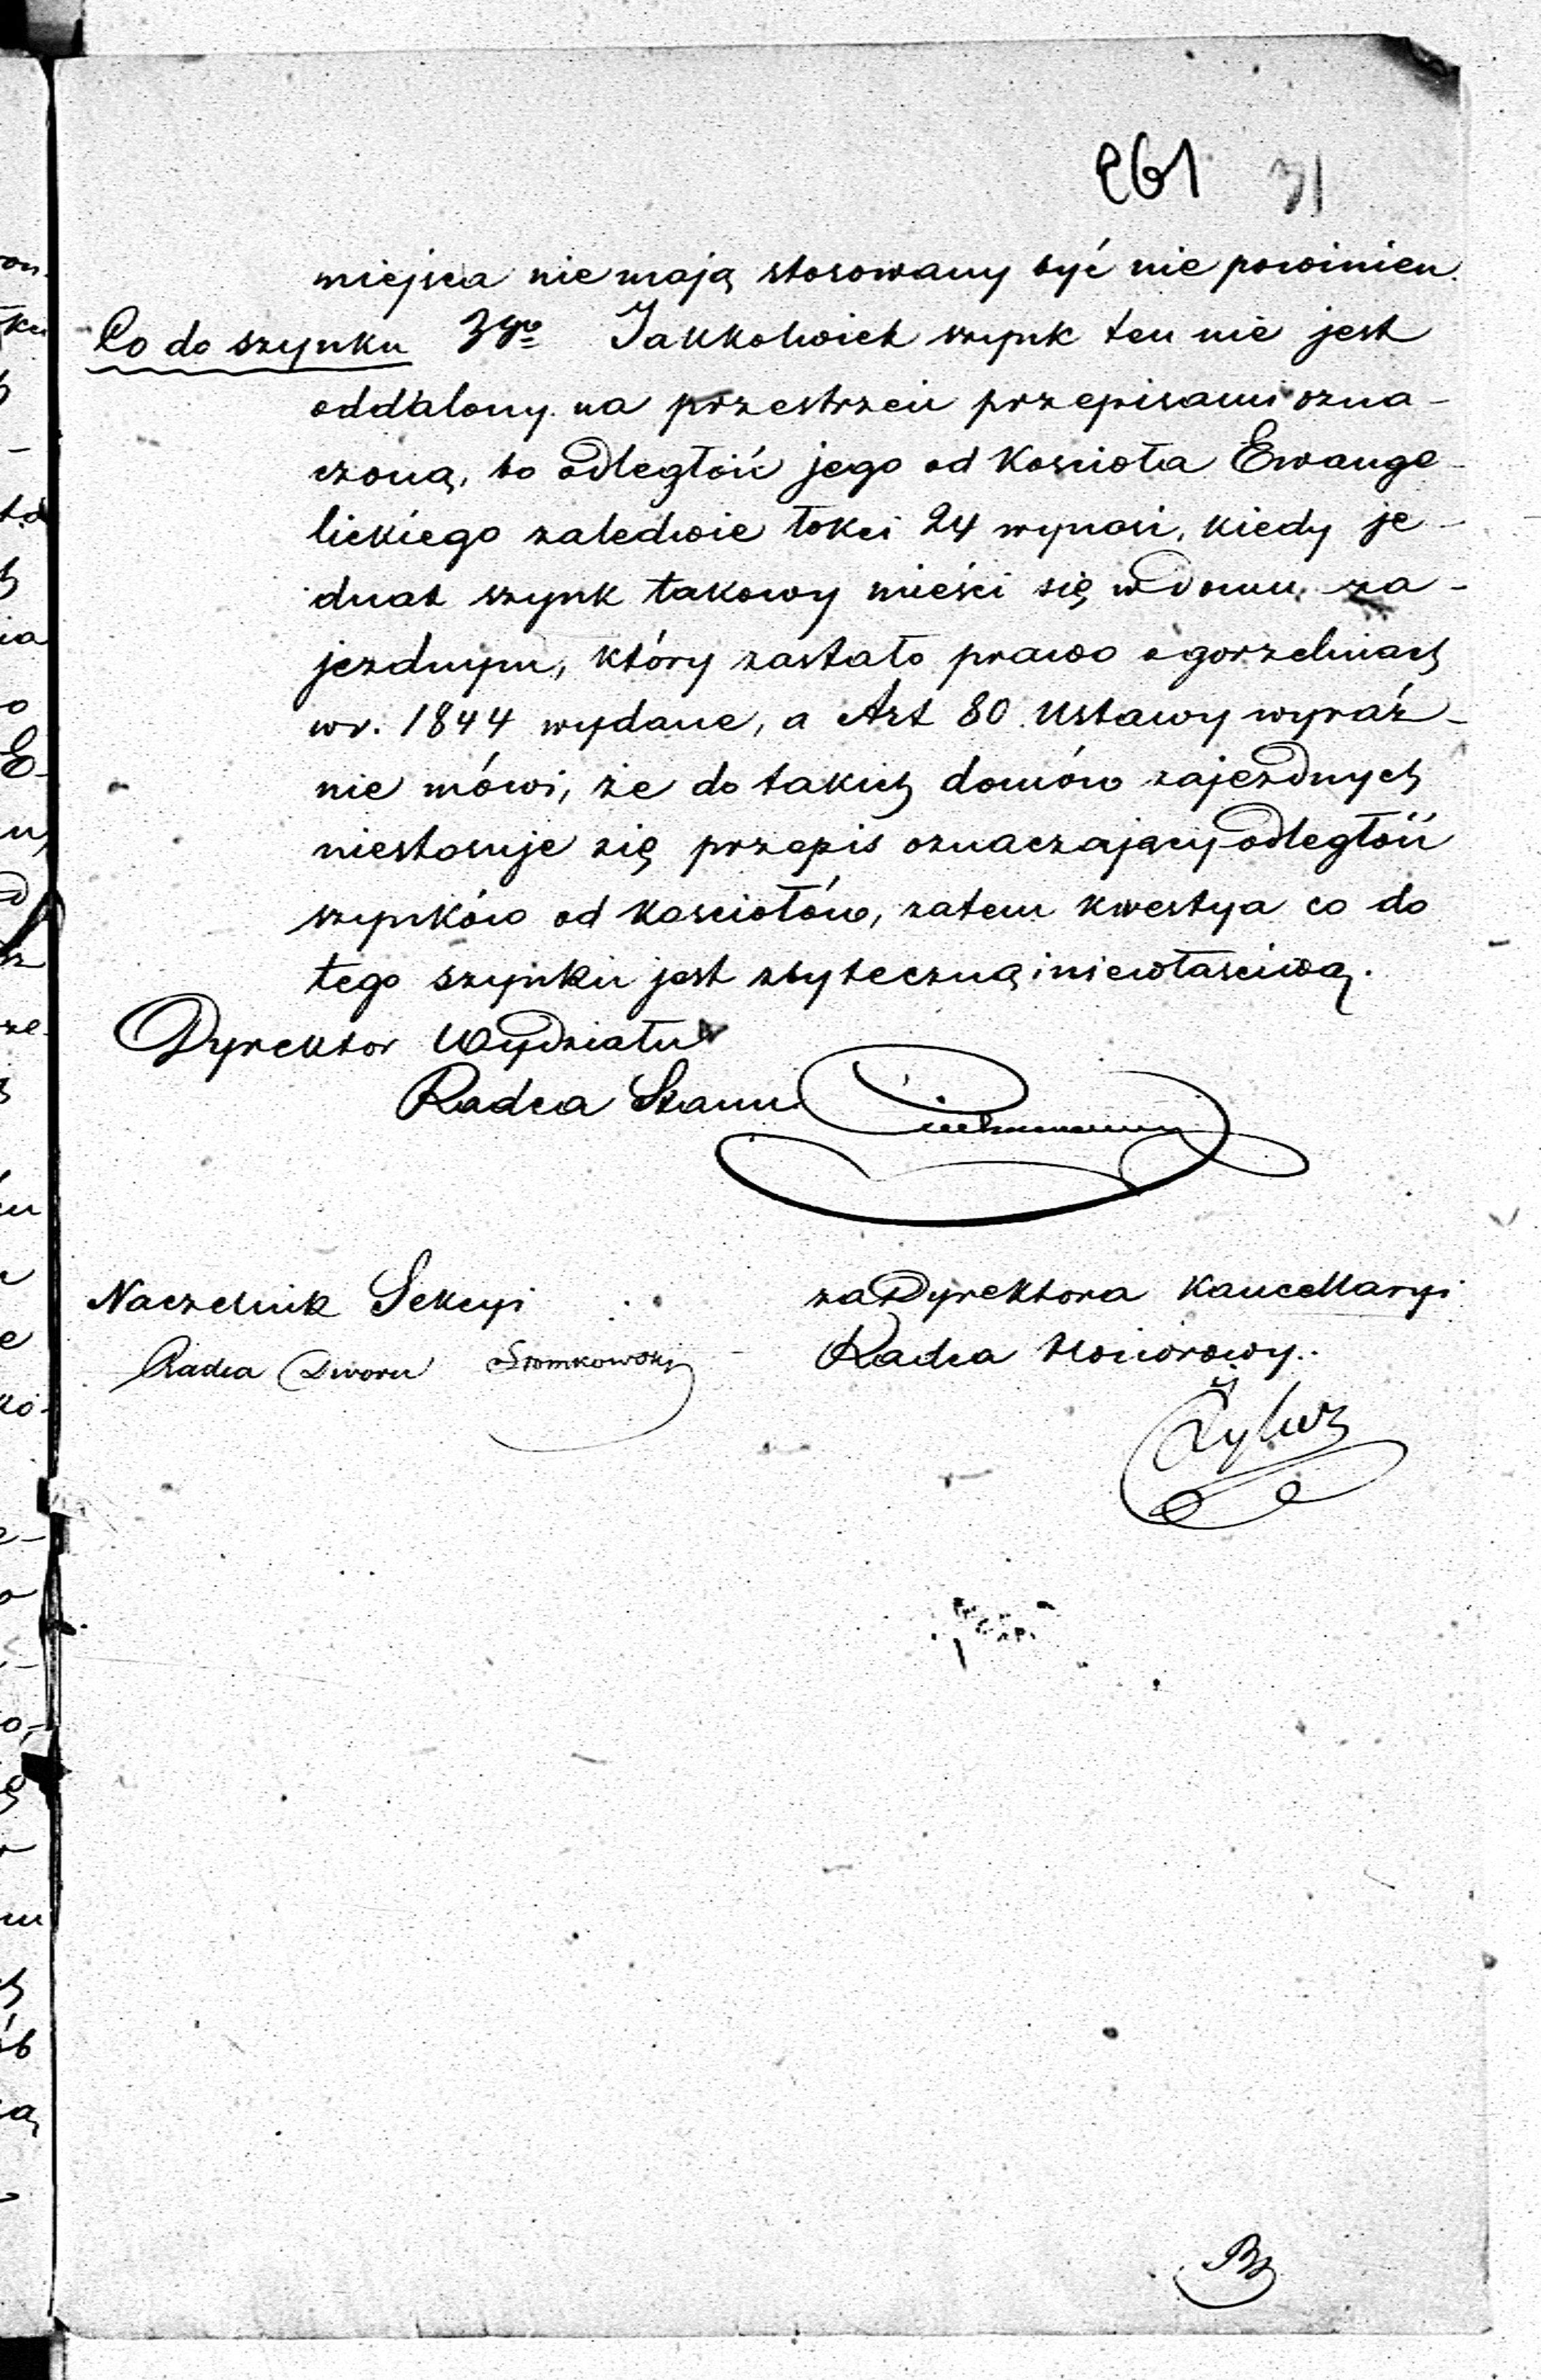 261 31
miejsca nie mają stosowany być nie powinien.
Co do szynku 3go Jakkolwiek szynk ten nie jest
oddalony na przestrzeń przepisami ozna-
czoną, bo odległość jego od Kościoła Ewange-
lickiego zaledwie łokci 24 wynosi, kiedy je-
dnak szynk takowy mieści się w domu za-
jezdnym, który zastało prawo o gorzelniach
w r. 1844 wydane, a Art 80 Ustawy wyraź-
nie mówi, że do takich domów zajezdnych
niestosuje się przepis oznaczający odległość
szynków od kościołów, zatem kwestya co do
tego szynku jest zbyteczną i niewłaściwą.
Dyrektor Wydziału
Radca Stanu
Naczelnik Sekcyi
Radca Dworu Słomkowski
za Dyrektora Kancellaryi
Radca Honorowy.